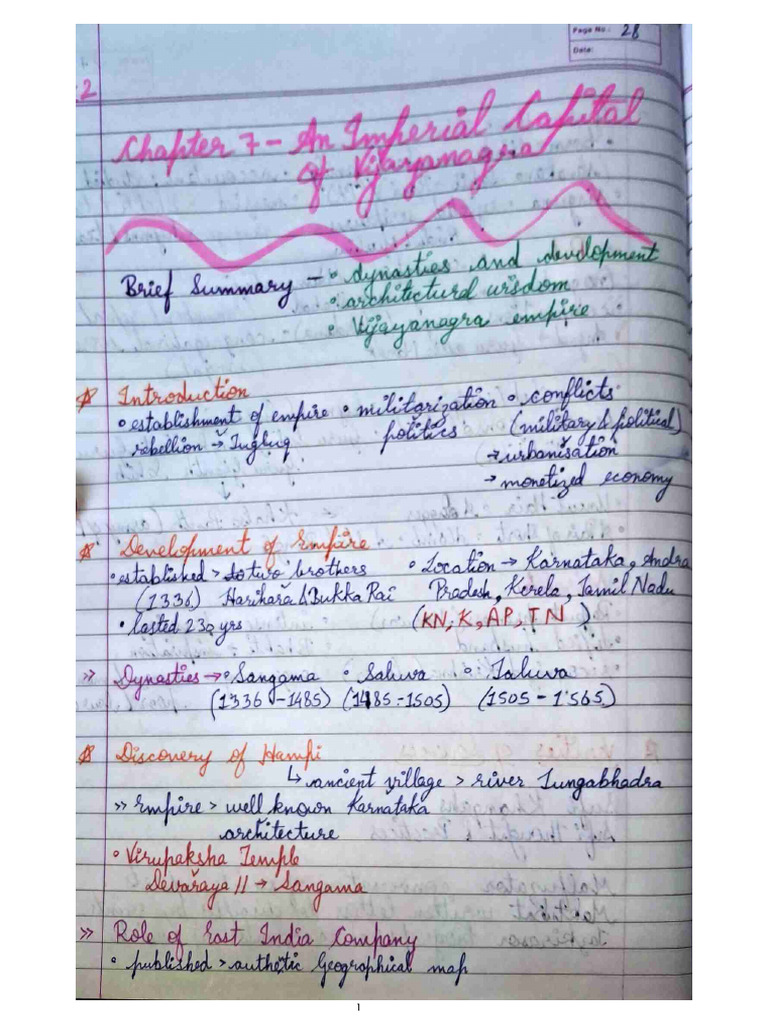 Page No.: 28
Date:
2
Chapter 7 - An Imperial Capital
of Vijayanagra
Brief Summary - • dynasties and development
• architectural wisdom
• Vijayanagra empire
Introduction
• establishment of empire • militarization • conflicts
rebellion → Tugluq politics (military & political)
→ urbanisation
→ monetized economy
Development of Empire
• established > two brothers • Location → Karnataka, Andra
(1336) Harihara & Bukka Rai Pradesh, Kerela, Tamil Nadu
• lasted 230 yrs (KN, K, AP, TN)
>> Dynasties → • Sangama • Saluva • Taluva
(1336 - 1485) (1485 - 1505) (1505 - 1565)
Discovery of Hampi
↳ ancient village > river Tungabhadra
>> Empire > well known Karnataka
architecture
• Virupaksha Temple
Devaraya II → Sangama
>> Role of East India Company
• published > authetic Geographical map
1